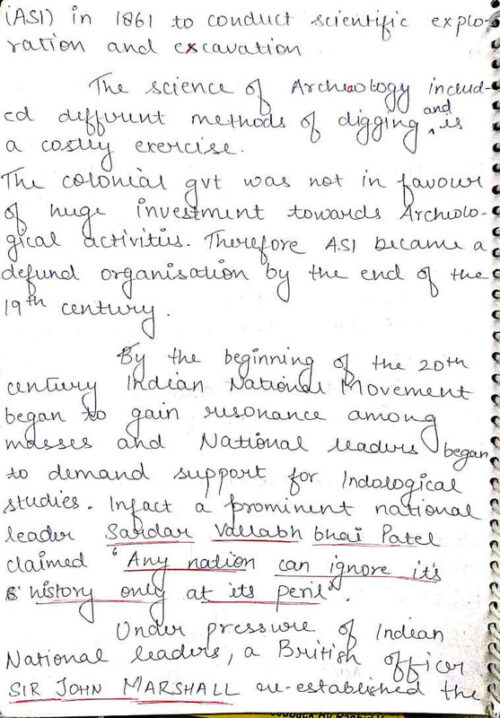 (ASI) in 1861 to conduct scientific explo-
ration and excavation
The science of Archeology includ-
ed different methods of digging, and is
a costly exercise.
The colonial gvt was not in favour
of huge investment towards Archeolo-
gical activities. Therefore ASI became a
defund organisation by the end of the
19th century.
By the beginning of the 20th
century Indian National Movement
began to gain resonance among
masses and National leaders began
to demand support for Indological
studies. Infact a prominent national
leader Sardar Vallabh bhai Patel
claimed "Any nation can ignore it's
history only at its peril".
Under pressure of Indian
National leaders, a British officer
SIR JOHN MARSHALL re-established the